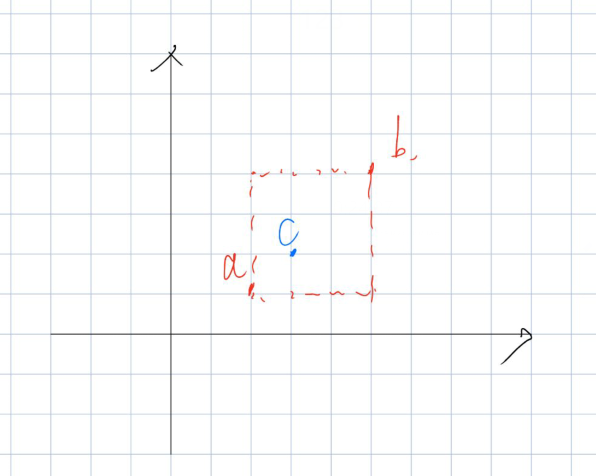 b
C
a